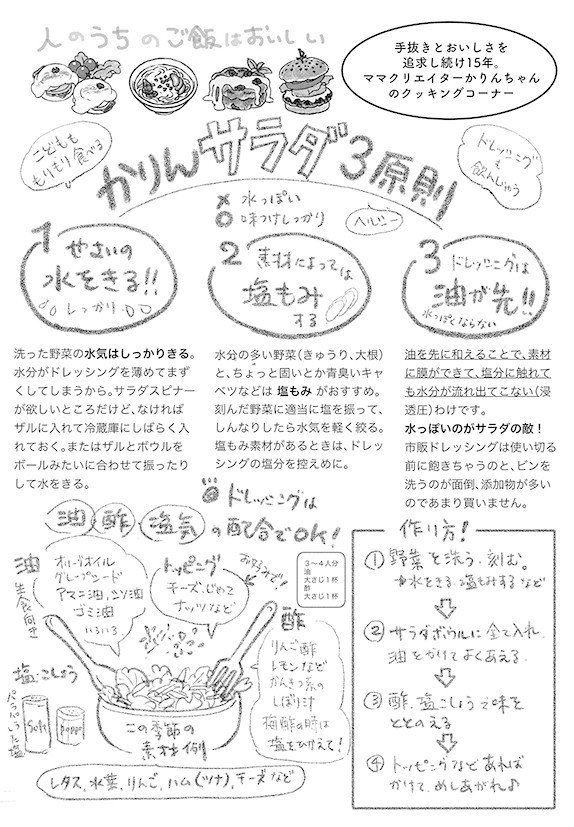 人のうちのご飯はおいしい
手抜きとおいしさを
追求し続け15年。
ママクリエイターかりんちゃん
のクッキングコーナー
こどもも
もりもり食べる
かりんサラダ3原則
ドレッシングも
飲んじゃう
× 水っぽい
○ 味つけしっかり
ヘルシー
1 やさいの
水をきる!!
しっかり
2 素材によっては
塩もみ
する
3 ドレッシングは
油が先!!
水っぽくならない
洗った野菜の水気はしっかりきる。
水分がドレッシングを薄めてまず
くしてしまうから。サラダスピナー
が欲しいところだけど、なければ
ザルに入れて冷蔵庫にしばらく入
れておく。またはザルとボウルを
ボールみたいに合わせて振ったり
して水をきる。
水分の多い野菜（きゅうり、大根）
と、ちょっと固いとか青臭いキャ
ベツなどは 塩もみ がおすすめ。
刻んだ野菜に適当に塩を振って、
しんなりしたら水気を軽く絞る。
塩もみ素材があるときは、ドレッ
シングの塩分を控えめに。
油を先に和えることで、素材
に膜ができて、塩分に触れて
も水分が流れ出てこない（浸
透圧）わけです。
水っぽいのがサラダの敵！
市販ドレッシングは使い切る
前に飽きちゃうのと、ビンを
洗うのが面倒、添加物が多い
のであまり買いません。
ドレッシングは
油 酢 塩気 の配合でOK!
油
生食向き
オリーブオイル
グレープシード
アマニ油、コメ油
ゴマ油
いろいろ
トッピング
お好みで!
チーズ、じゃこ
ナッツなど
3〜4人分
油
大さじ1杯
酢
大さじ1杯
酢
りんご酢
レモンなど
かんきつ系の
しぼり汁
梅酢の時は
塩をひかえて!
塩、こしょう
Salt
この季節の
素材例
レタス、水菜、りんご、ハム(ツナ)、チーズなど
作り方!
① 野菜を洗う、刻む。
水をきる、塩もみするなど
② サラダボウルに全て入れ
油をかけてよくあえる
③ 酢、塩こしょうで味を
ととのえる
④ トッピングなどあれば
かけて、めしあがれ♪